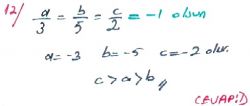 12/ a/3 = b/5 = c/2 = -1 olsun
a=-3 b=-5 c=-2 olur.
c>a>b//
(CEVAP:D)